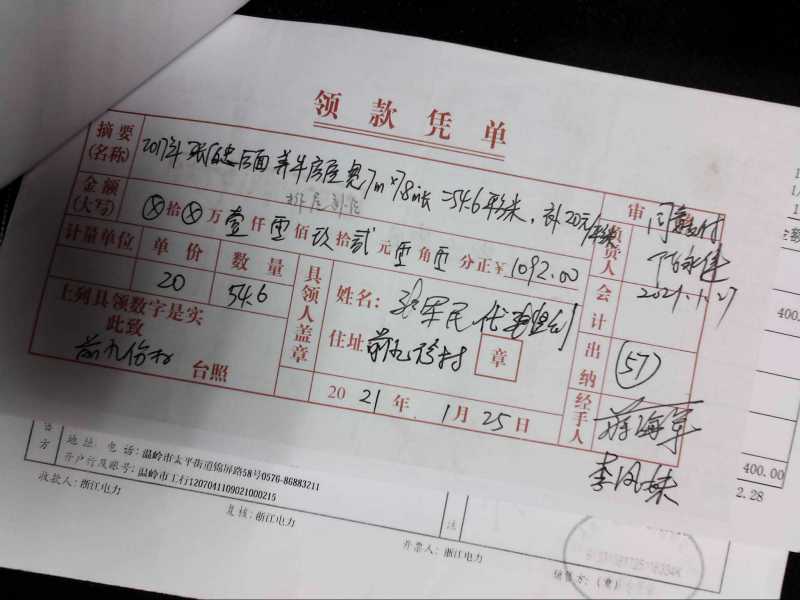 领款凭单
摘要(名称) 2017年 张 后面 养牛房屋宽7m×7.8m长=54.6平方米，计20元/平米
金额(大写) ⊗拾⊗万壹仟零佰玖拾贰元零角零分正¥1092.00
计量单位 单价 数量
20 54.6
上列具领数字是实
此致
台照
具领人盖章
姓名： 张军民代
住址 章
2021年1月25日
审 同意付
负责人
会计 2021.1.27
出纳 (57)
经手人 蒋海军
李凤妹
400.
400.00
2.28
方
地址、电话：温岭市太平街道锦屏路58号0576-86883211
开户行及账号：温岭市工行1207041109021000215
收款人：浙江电力
复核：浙江电力
开票人：浙江电力
销售方：(章)